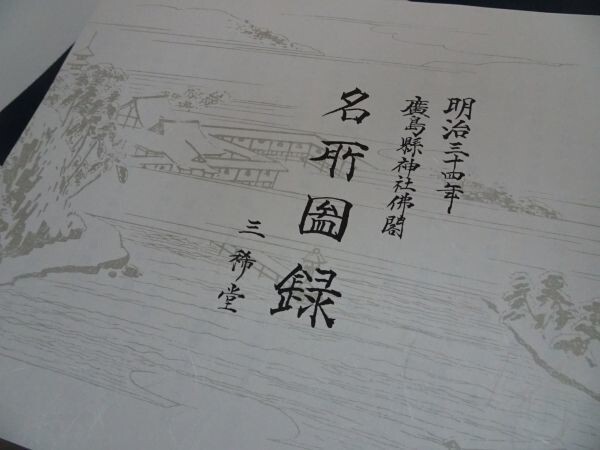 明治三十四年
廣島縣神社佛閣
名所圖録
三稀堂